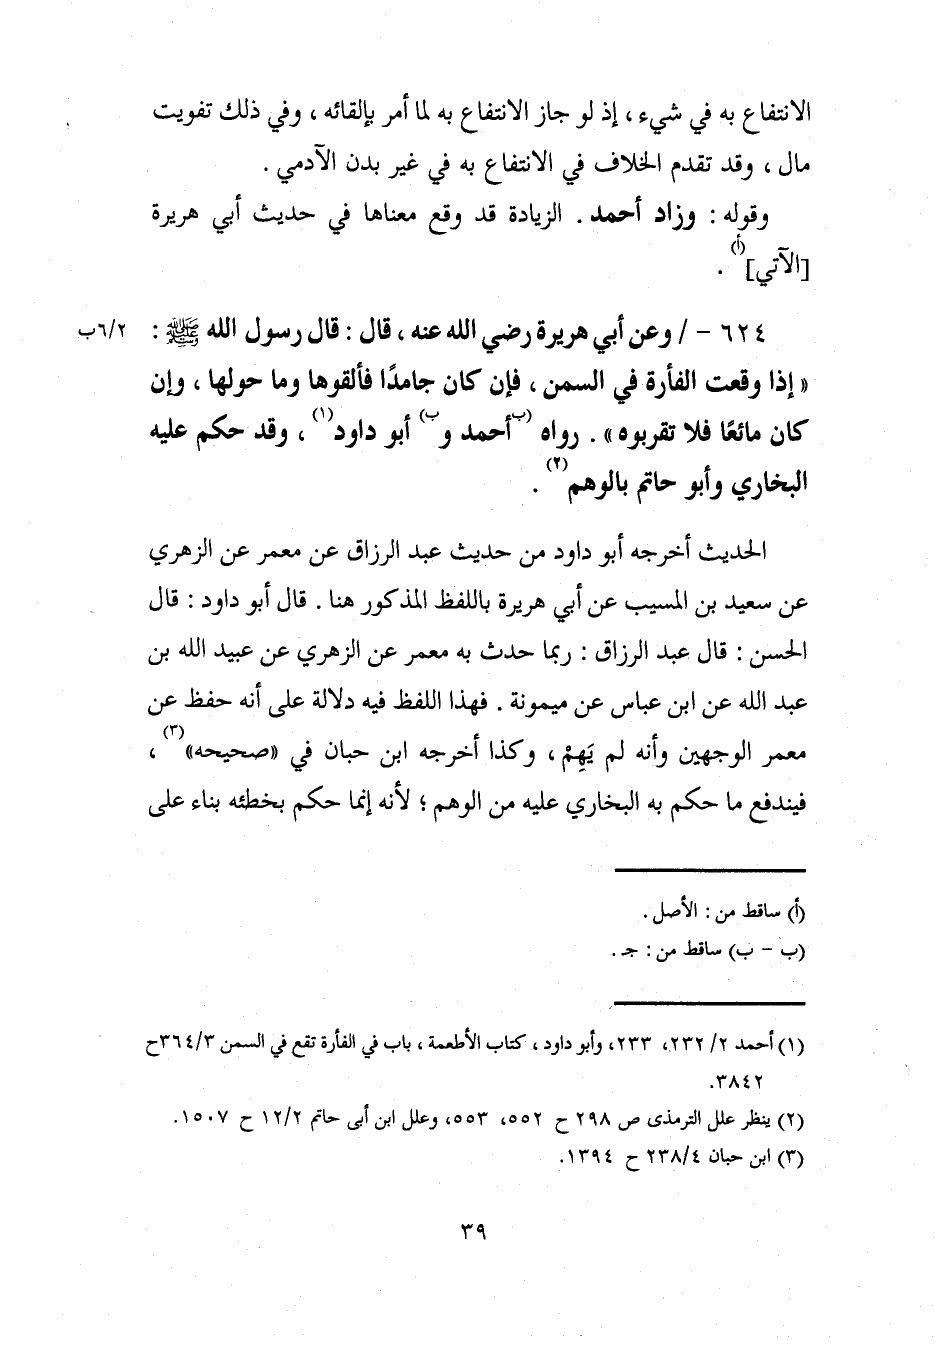 الانتفاع به في شيء ، إذ لو جاز الانتفاع به لما أمر بإلقائه ، وفي ذلك تفويت
مال ، وقد تقدم الخلاف في الانتفاع به في غير بدن الآدمي .
وقوله : وزاد أحمد . الزيادة قد وقع معناها في حديث أبي هريرة
[الآتي](أ) .
٦٢٤ - / وعن أبي هريرة رضي الله عنه ، قال : قال رسول الله ﷺ : ٦/٢ب
« إذا وقعت الفأرة في السمن ، فإن كان جامدًا فألقوها وما حولها ، وإن
كان مائعًا فلا تقربوه » . رواه (ب أحمد وب) أبو داود(١) ، وقد حكم عليه
البخاري وأبو حاتم بالوهم(٢) .
الحديث أخرجه أبو داود من حديث عبد الرزاق عن معمر عن الزهري
عن سعيد بن المسيب عن أبي هريرة باللفظ المذكور هنا . قال أبو داود : قال
الحسن : قال عبد الرزاق : ربما حدث به معمر عن الزهري عن عبيد الله بن
عبد الله عن ابن عباس عن ميمونة . فهذا اللفظ فيه دلالة على أنه حفظ عن
معمر الوجهين وأنه لم يَهِمْ ، وكذا أخرجه ابن حبان في «صحيحه»(٣) ،
فيندفع ما حكم به البخاري عليه من الوهم ؛ لأنه إنما حكم بخطئه بناء على
(أ) ساقط من : الأصل .
(ب - ب) ساقط من : جـ .
(١) أحمد ٢/ ٢٣٢، ٢٣٣، وأبو داود ، كتاب الأطعمة ، باب في الفأرة تقع في السمن ٣٦٤/٣ح
٣٨٤٢.
(٢) ينظر علل الترمذى ص ٢٩٨ ح ٥٥٢، ٥٥٣، وعلل ابن أبى حاتم ١٢/٢ ح ١٥٠٧.
(٣) ابن حبان ٢٣٨/٤ ح ١٣٩٤.
٣٩